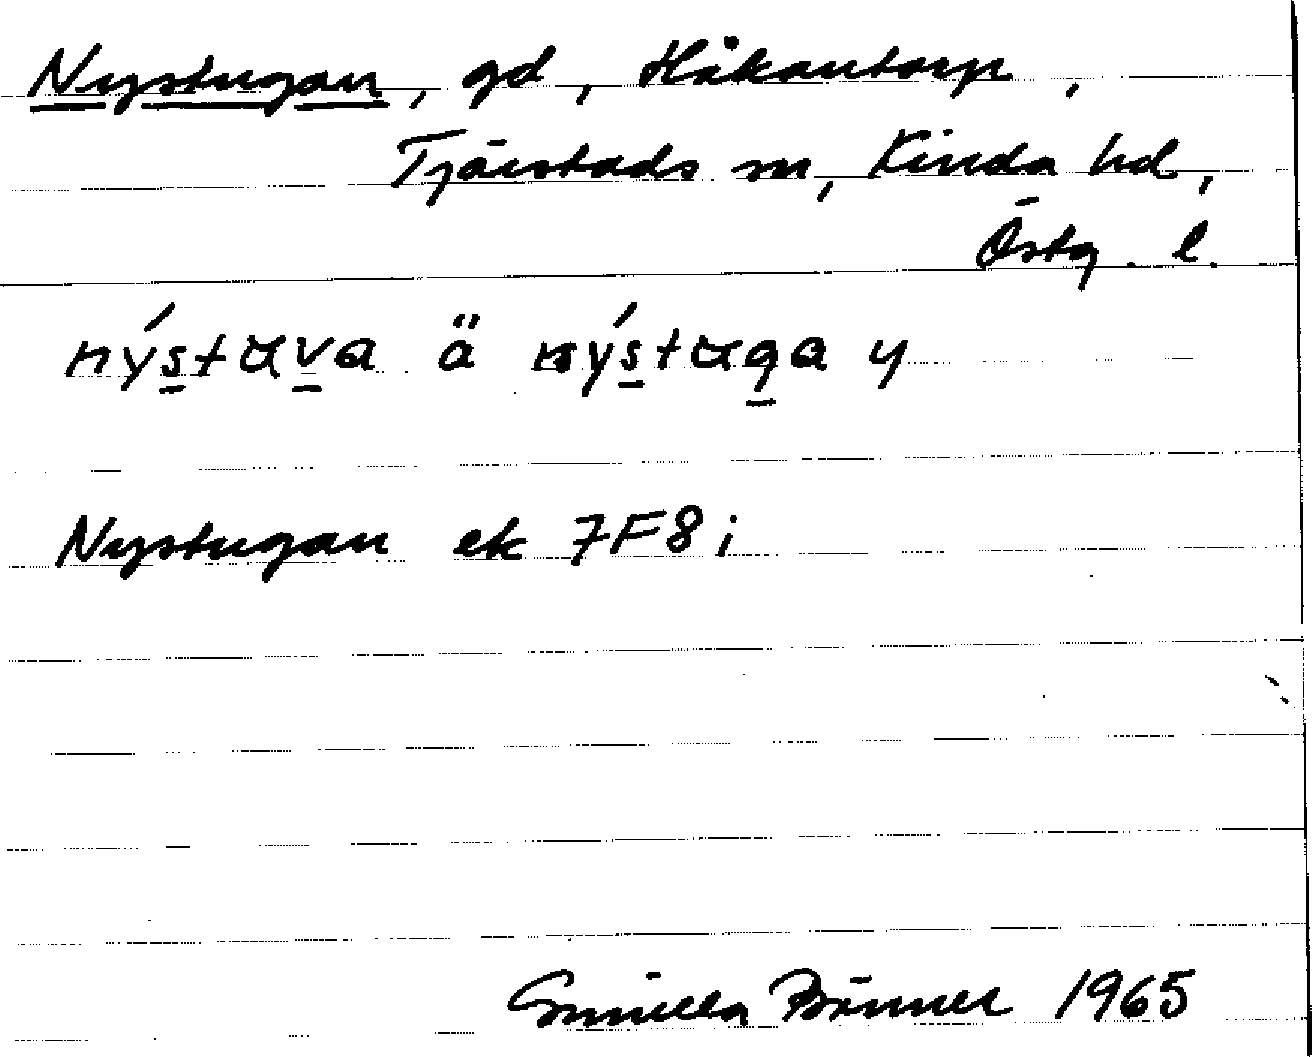 Nystugan, gd, Håkantorp,
Tjärstads sn, Kinda hd,
Östg. l.
nýstuva ä nýstuga y
Nystugan ek 7F8i
Gunilla Brömer 1965